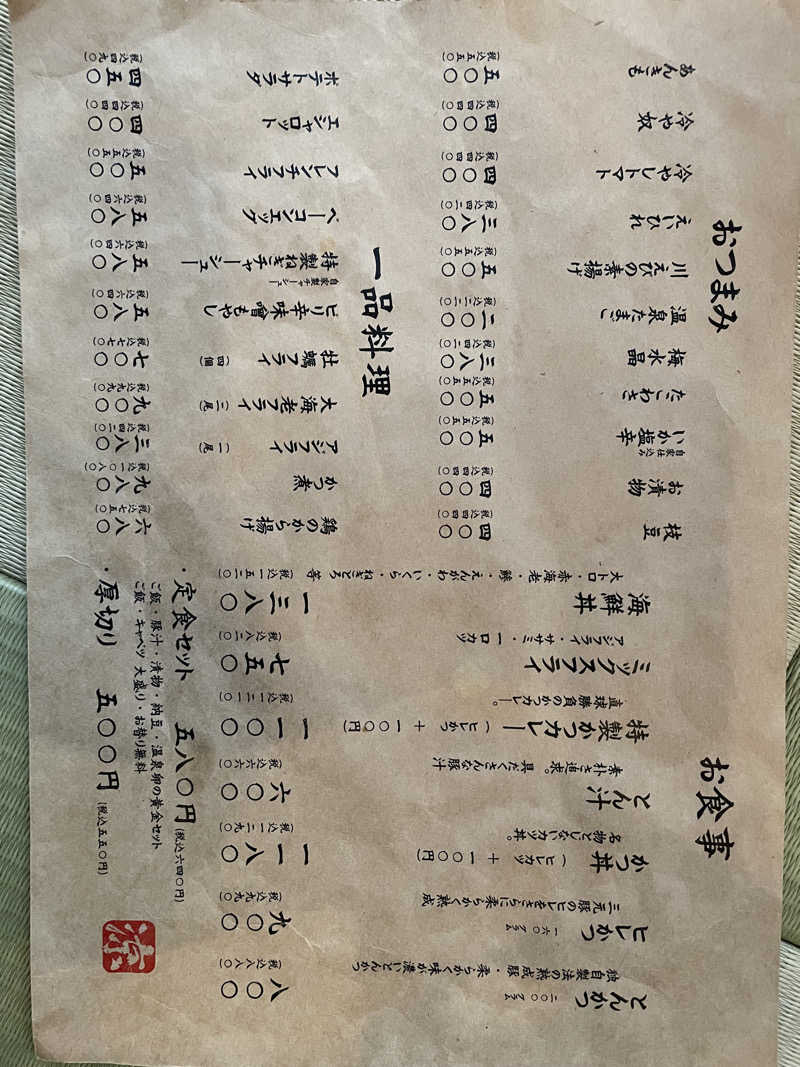 お食事
とんかつ 二〇〇グラム 八〇〇 (税込八八〇)
独自製法の熟成豚・柔らかく味が濃いとんかつ
ヒレかつ 一六〇グラム 九〇〇 (税込九九〇)
三元豚のヒレをさらに柔らかく熟成
かつ丼 (ヒレカツ + 一〇〇円) 一一八〇 (税込一二九〇)
名物とじないカツ丼。
とん汁 六〇〇 (税込六六〇)
素朴さ追求。具だくさんな豚汁
特製かつカレー (ヒレかつ + 一〇〇円) 一一〇〇 (税込一二一〇)
直球勝負のかつカレー。
ミックスフライ 七五〇 (税込八二〇)
アジフライ・ササミ・一ロカツ
海鮮丼 一三八〇 (税込一五二〇)
大トロ・赤海老・鯵・えんがわ・いくら・ねぎとろ等
・定食セット 五八〇円 (税込六四〇円)
ご飯・豚汁・漬物・納豆・温泉卵の黄金セット
ご飯・キャベツ 大盛り・お替り無料
・厚切り 五〇〇円 (税込五五〇円)
おつまみ
枝豆 四〇〇 (税込四四〇)
お漬物 四〇〇 (税込四四〇)
いか塩辛 自家仕込み 五〇〇 (税込五五〇)
たこわさ 五〇〇 (税込五五〇)
梅水晶 三八〇 (税込四二〇)
温泉たまご 二〇〇 (税込二二〇)
川えびの素揚げ 五〇〇 (税込五五〇)
えいひれ 三八〇 (税込四二〇)
冷やしトマト 四〇〇 (税込四四〇)
冷や奴 四〇〇 (税込四四〇)
あんきも 五〇〇 (税込五五〇)
一品料理
鶏のから揚げ 六八〇 (税込七五〇)
かつ煮 九八〇 (税込一〇八〇)
アジフライ (一尾) 三八〇 (税込四二〇)
大海老フライ (三尾) 九〇〇 (税込九九〇)
牡蠣フライ (四個) 七〇〇 (税込七七〇)
ピリ辛味噌もやし 五八〇 (税込六四〇)
特製ねぎチャーシュー 自家製チャーシュー 五八〇 (税込六四〇)
ベーコンエッグ 五八〇 (税込六四〇)
フレンチフライ 五〇〇 (税込五五〇)
エシャロット 四〇〇 (税込四四〇)
ポテトサラダ 四五〇 (税込四九〇)